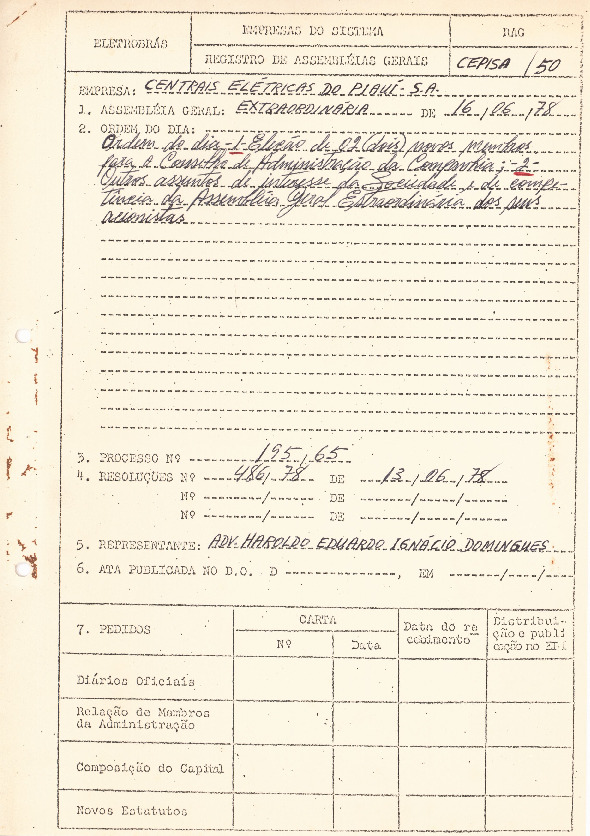 ELETROBRÁS
EMPRESAS DO SISTEMA
DAG
REGISTRO DE ASSEMBLÉIAS GERAIS
CEPISA /50
EMPRESA: CENTRAIS ELÉTRICAS DO PIAUÍ-S.A.
1. ASSEMBLÉIA GERAL: EXTRAORDINÁRIA DE 16/06/78
2. ORDEM DO DIA:
Ordem do dia -1- Eleição de 02 (dois) novos membros
para o Conselho de Administração da Companhia; -2-
Outros assuntos de interesse da Sociedade e de compe-
tência da Assembléia Geral Extraordinária dos seus
acionistas
3. PROCESSO Nº 195/65
4. RESOLUÇÕES Nº 486/78 DE 13/06/78
Nº ------/------ DE -----/----/----
Nº ------/------ DE -----/----/----
5. REPRESENTANTE: ADV. HAROLDO EDUARDO IGNÁCIO DOMINGUES
6. ATA PUBLICADA NO D.O. D --------------, EM ------/----/----
7. PEDIDOS
CARTA
Nº
Data
Data do re
cebimento
Distribui-
ção e publi
cação no
Diários Oficiais
Relação de Membros
da Administração
Composição do Capital
Novos Estatutos